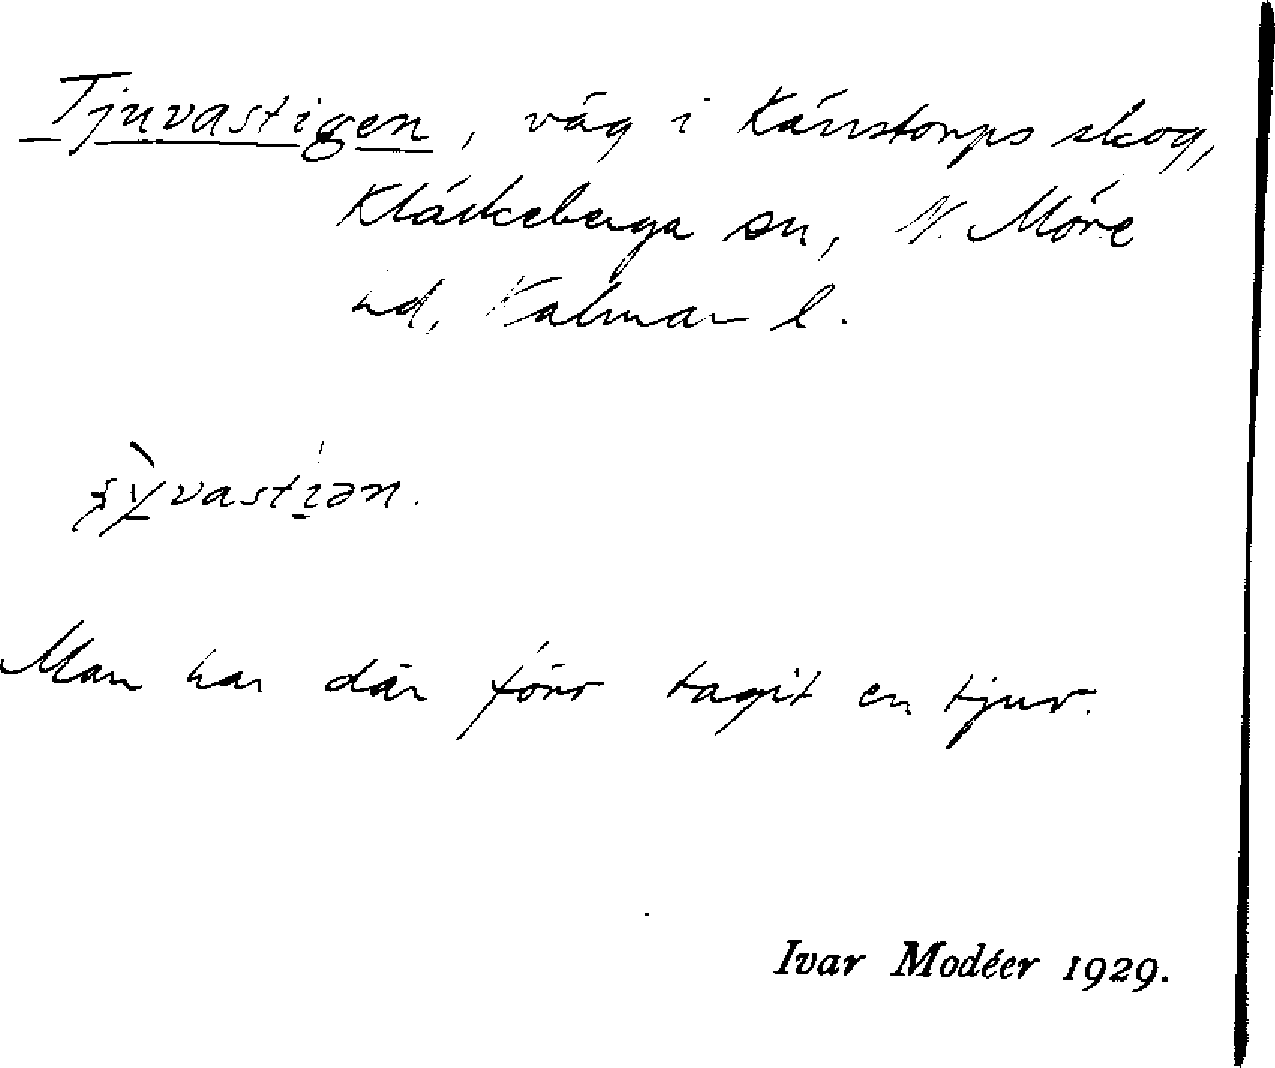 Tjuvastigen, väg i Kärrstorps skog,
Kläckeberga sn, N. Möre
hd, Kalmar l.
Man har där förr tagit en tjuv.
Ivar Modéer 1929.